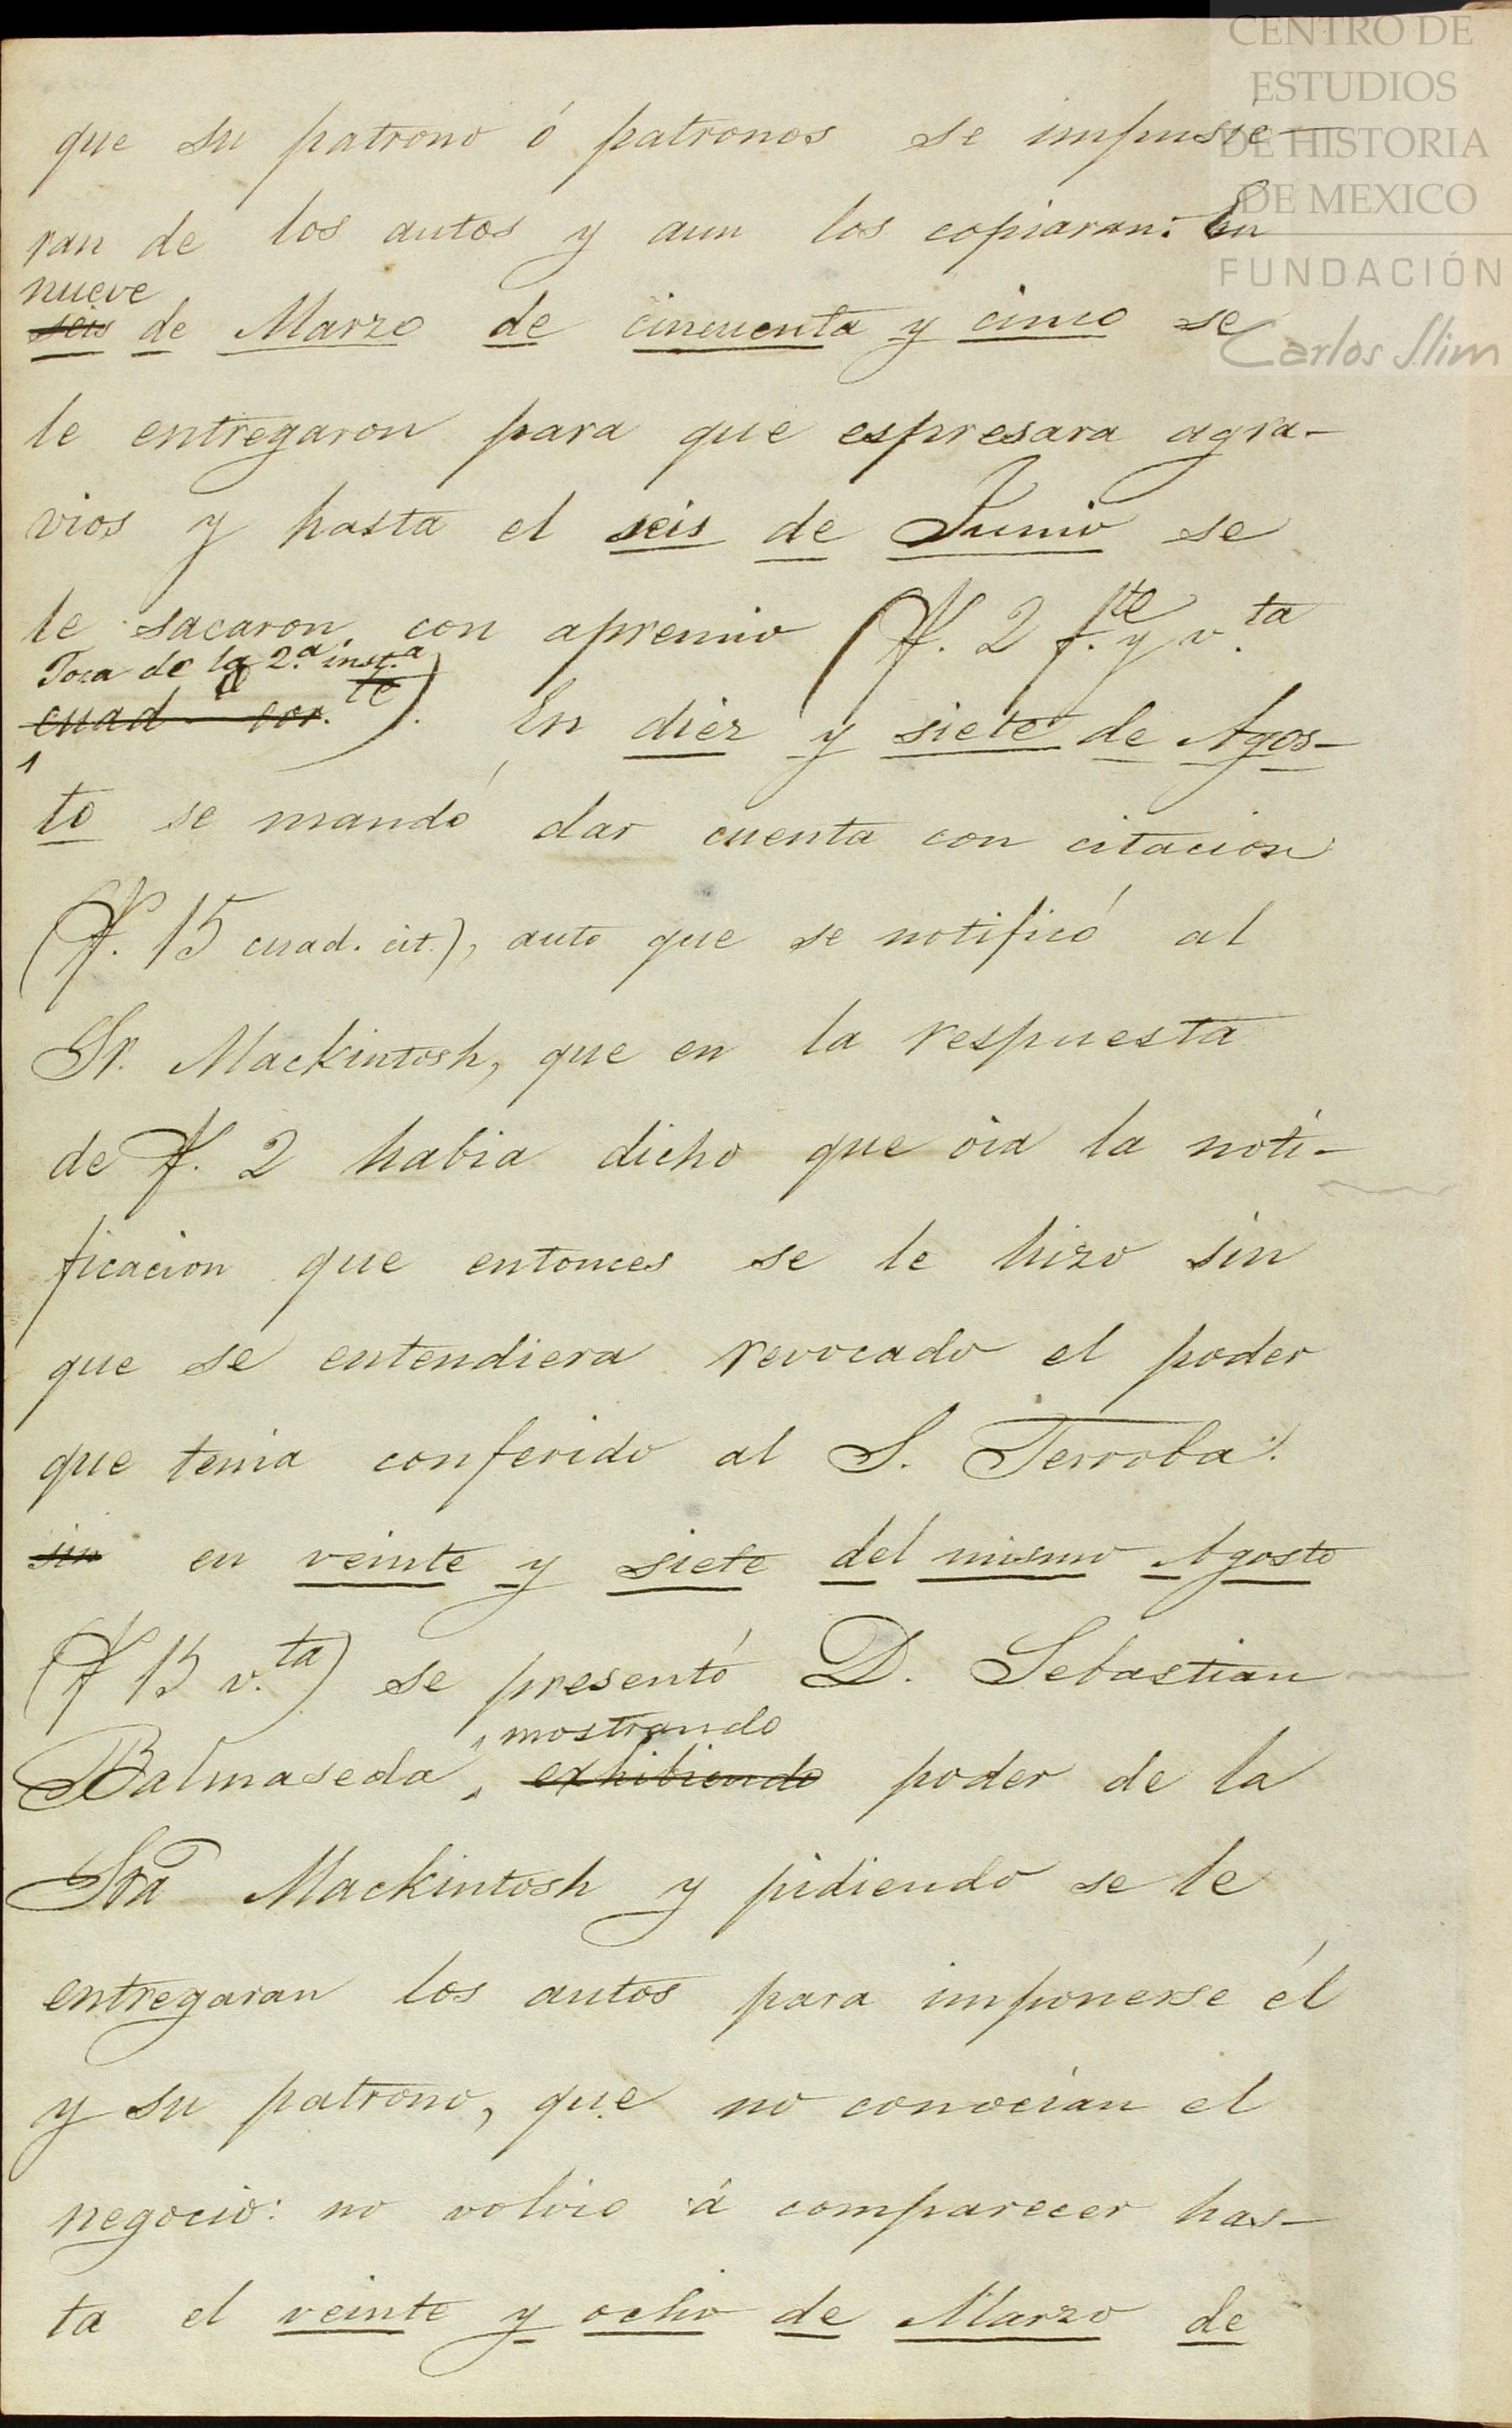 CENTRO DE
ESTUDIOS
DE HISTORIA
DE MEXICO
FUNDACIÓN
Carlos Slim
que su patrono ó patronos se impusie-
ran de los autos y aun los copiaran: En
nueve
seis de Marzo de cincuenta y cinco se
le entregaron para que espresara agra-
vios y hasta el seis de Junio se
le sacaron con apremio (f. 2 f.te y v.ta
Toca de la 2.a inst.a
cuad cor.te). En diez y siete de Agos-
to se mandó dar cuenta con citacion
(f. 15 cuad. cit.), auto que se notificó al
Sr. Mackintosh, que en la respuesta
de f. 2 habia dicho que oia la noti-
ficacion que entonces se le hizo sin
que se entendiera revocado el poder
que tenia conferido al S. Terroba:
sin en veinte y siete del mismo Agosto
(f 15 v.ta) se presentó D. Sebastian
mostrando
Balmaseda, exhibiendo poder de la
Sra Mackintosh y pidiendo se le
entregaran los autos para imponerse él
y su patrono, que no conocian el
negocio: no volvio á comparecer has-
ta el veinte y ocho de Marzo de